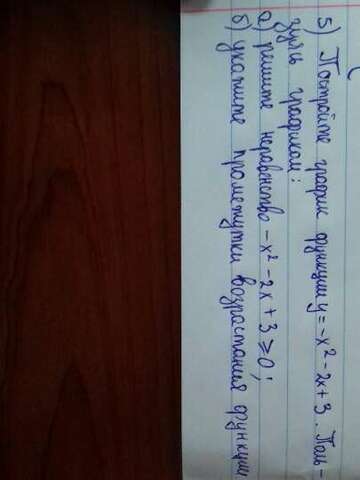 5) Постройте график функции y = -x² - 2x + 3. Поль-
зуясь графиком:
а) решите неравенство -x² - 2x + 3 ≥ 0;
б) укажите промежутки возрастания функции